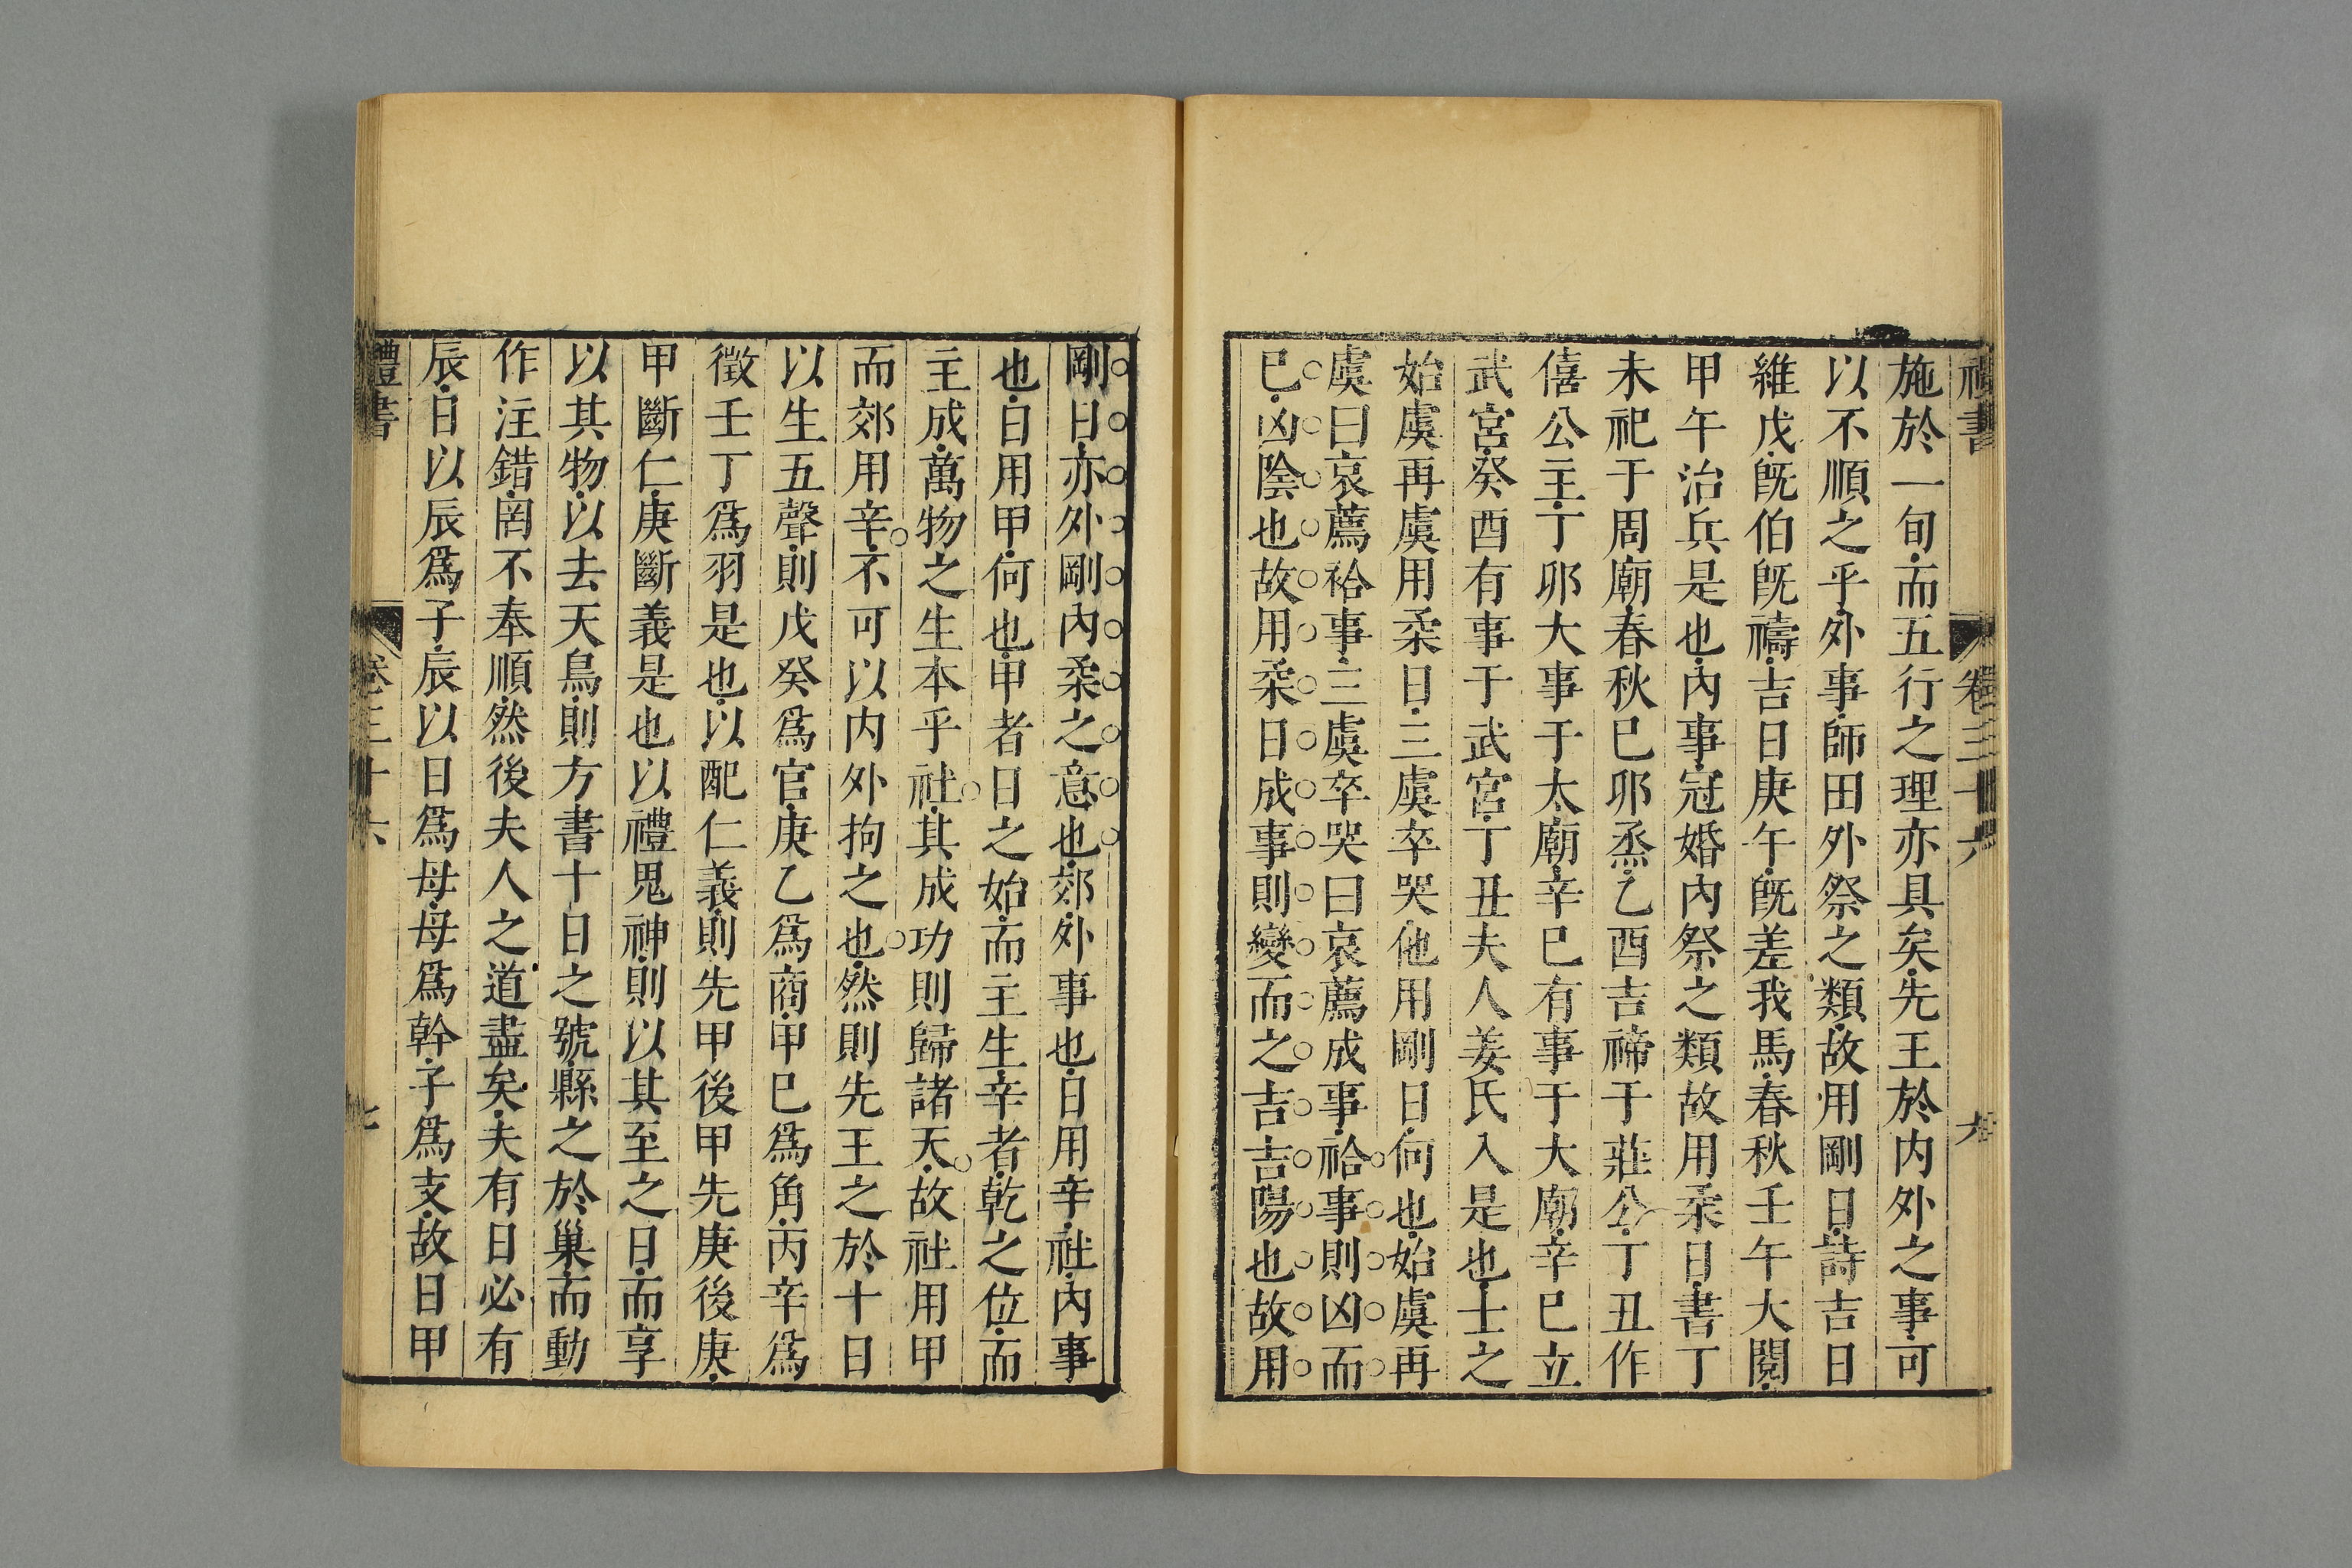 禮書 卷三十六 六
施於一旬而五行之理亦具矣先王於内外之事可
以不順之乎外事師田外祭之類故用剛日詩吉日
維戊旣伯旣禱吉日庚午旣差我馬春秋壬午大閱
甲午治兵是也內事冠婚內祭之類故用柔日書丁
未祀于周廟春秋巳卯烝乙酉吉禘于莊公丁丑作
僖公主丁卯大事于太廟辛巳有事于大廟辛巳立
武宮癸酉有事于武宮丁丑夫人姜氏入是也士之
始虞再虞用柔日三虞卒哭他用剛日何也始虞再
虞曰哀薦祫事三虞卒哭曰哀薦成事祫事則凶而
已凶陰也故用柔日成事則變而之吉吉陽也故用
剛日亦外剛內柔之意也郊外事也日用辛社內事
也日用甲何也甲者日之始而主生辛者乾之位而
主成萬物之生本乎社其成功則歸諸天故社用甲
而郊用辛不可以内外拘之也然則先王之於十日
以生五聲則戊癸爲宮庚乙爲商甲巳爲角丙辛爲
徵壬丁爲羽是也以配仁義則先甲後甲先庚後庚
甲斷仁庚斷義是也以禮鬼神則以其至之日而享
以其物以去天鳥則方書十日之號縣之於巢而動
作注錯罔不奉順然後夫人之道盡矣夫有日必有
辰日以辰爲子辰以日爲母母爲幹子爲支故日甲
禮書 卷三十六 七